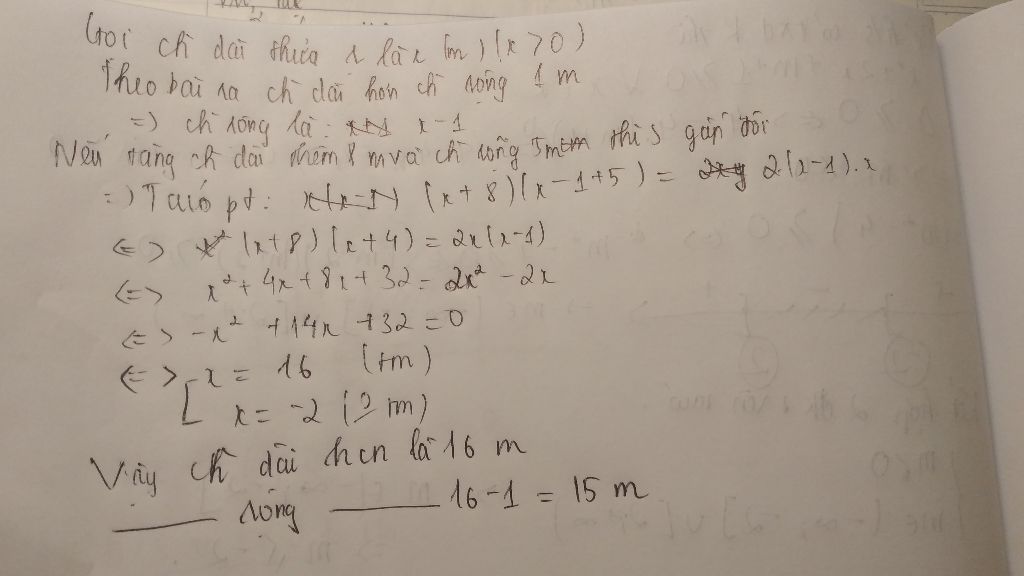 Gọi ch dài thửa r là x (m) (x > 0)
Theo bài ra ch dài hơn ch rộng 1 m
=) ch rộng là: x-1
Nếu tăng ch dài thêm 8 m và ch rộng 5m thì S gấp đôi
=) Ta có pt: (x + 8)(x - 1 + 5) = 2(x-1).x
<=> (x+8)(x+4) = 2x(x-1)
<=> x² + 4x + 8x + 32 = 2x² - 2x
<=> -x² + 14x + 32 = 0
<=> [ x = 16 (tm)
x = -2 (0 tm)
Vậy ch dài hcn là 16 m
rộng 16-1 = 15 m